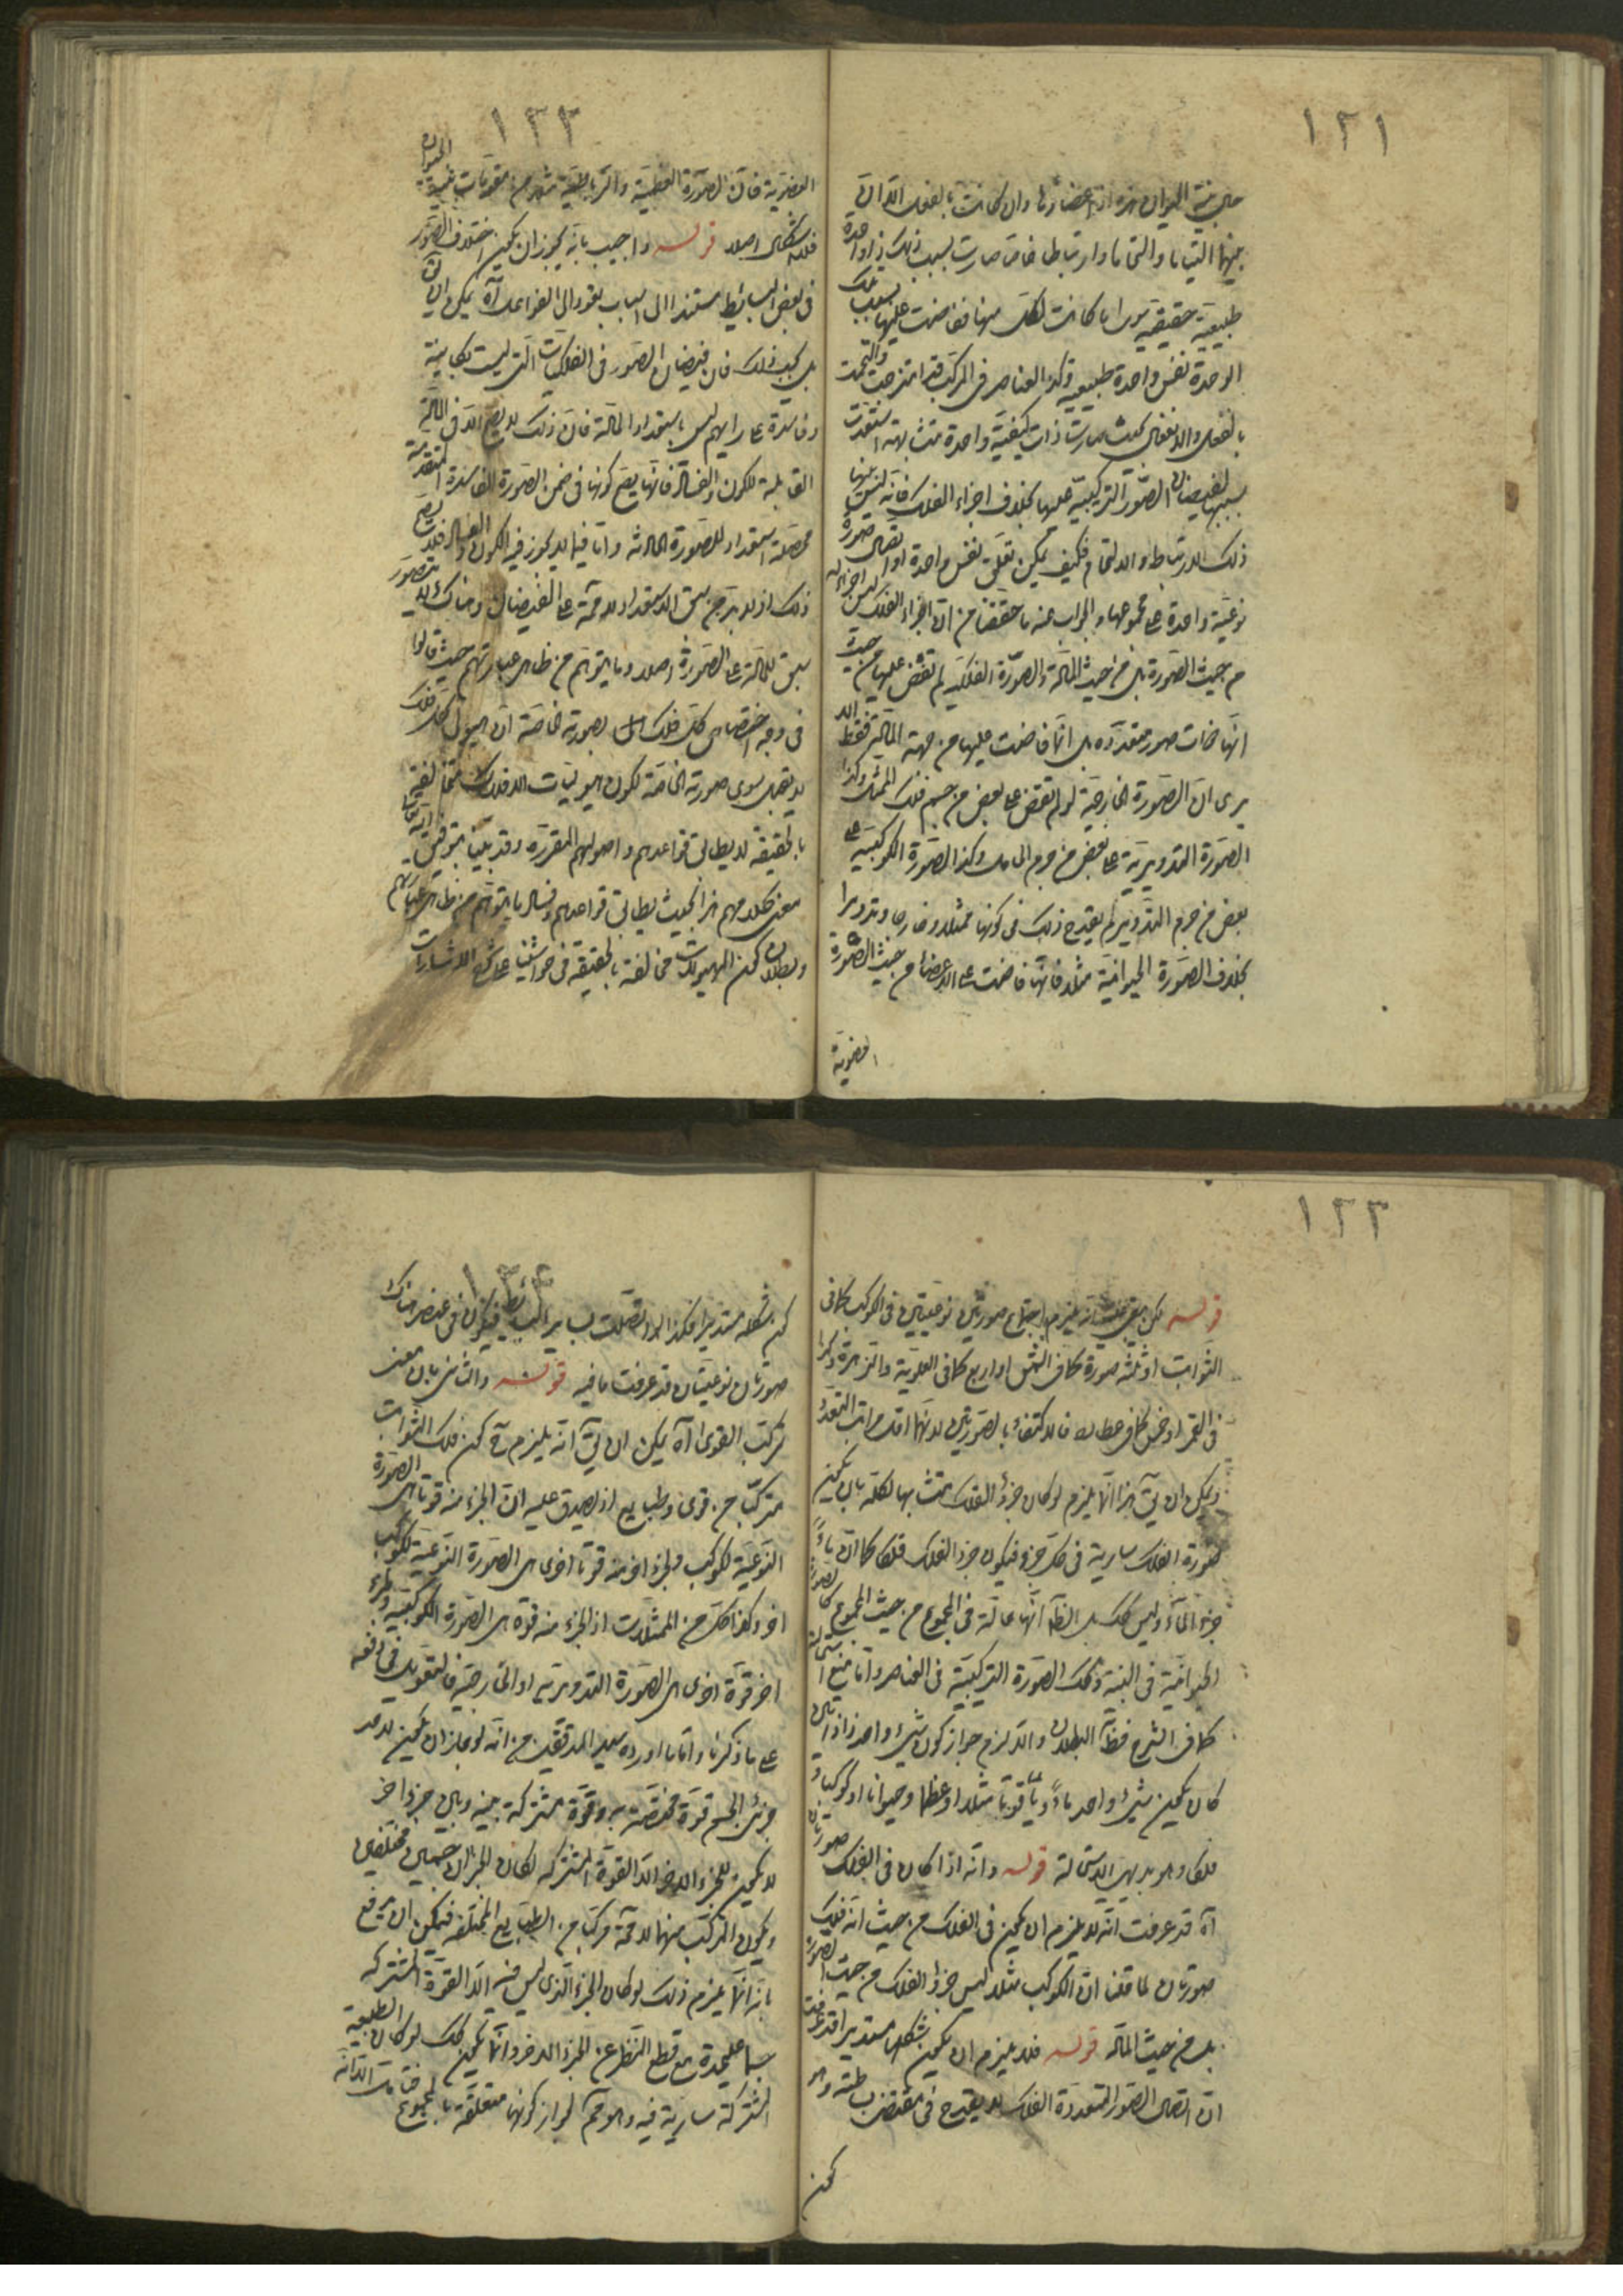 ١٢١
بينها التياما والتحاما وارتباطا خاصا صارت بسبب ذلك ذا واحدة
طبيعية حقيقية سوى ما كانت لكل منها ففاضت عليها بسبب تلك
الوحدة نفس واحدة طبيعية وكذا العناصر في المركب قد امتزجت والتحمت
بالفعل والانفعال بحيث صارت ذات كيفية واحدة متشابهة استعدت
بسببها لفيضان الصور التركيبية عليها بخلاف اجزاء الفلك فانه ليس بينها
ذلك الارتباط والالتحام فكيف يمكن تعلق نفس واحدة او اتصال صورة
نوعية واحدة على مجموعها والجواب عنه ما حققنا من ان اجزاء الفلك ليس اجزاء له
من حيث الصورة بل من حيث المادة والصورة الفلكية لم تفض عليها من حيث
انها ذات صور متعددة بل انما فاضت عليها من جهة المادة فقط الا
يرى ان الصورة الخارجية لو لم تفض على بعض من جسم فلك الممثل وكذا
الصورة التدويرية على بعض من جرم الحامل وكذا الصورة الكوكبية على
بعض من جرم التدوير لم يقدح ذلك في كونها ممثلا وخارجا وتدويرا
بخلاف الصورة الحيوانية مثلا فانها فاضت على الاعضاء من حيث الصورة
العضوية
١٢٢
العضوية فان الصورة العظمية والرباطية مثلا من مقومات بنية الحيوان
فلا اشكال اصلا قوله واجيب بانه يجوز ان يكون اختلاف الصور
في بعض البسائط مستندا الى اسباب تعود الى الفواعل آه يمكن ان يق
بل يجب ذلك فان فيضان الصور في الفلكيات التي ليست بكاينة
وفاسدة على رايهم ليس باستعداد المادة فان ذلك لا يصح الا في المادة
القابلة للكون والفساد فانها يصح كونها في ضمن الصورة الفاسدة المتقدمة
محصلة استعداد للصورة الحادثة واما فيما لا يجوز فيه الكون والفساد فلا يصح
ذلك اذ لا بد من سبق الاستعداد لا محة على الفيضان وهناك لا يتصور
سبق للمادة على الصورة اصلا وما يتوهم من ظاهر عبارتهم حيث قالوا
في وجه اختصاص كل فلك بصورته الخاصة ان هيولى كل فلك
لا يقبل سوى صورته الخاصة لكون هيوليات الافلاك متخالفة
بالحقيقة لا يطابق قواعدهم واصولهم المقررة وقد بينا بتوفيق الله تعا
معنى كلامهم هذا بحيث يطابق قواعدهم وفساد ما يتوهم من ظاهر عباراتهم
وبطلان كون الهيوليات مخالفة بالحقيقة في حواشينا على شرح الاشارات
١٢٣
قوله لكن بقي بحث انه يلزم اجتماع صورتين نوعيتين في الكوكب كما في
الثوابت او ثلثه صورة كما في الشمس او اربع كما في العلوية والزهرة وكذا
في القمر او خمس كما في عطارد فالاكتفاء بالصورتين لانهما اقل مراتب التعدد
ويمكن ان يق هذا انما يلزم لو كان جزء الفلك متشابها لكله بان يكون
صورة الفلك سارية في كل جزء فيكون جزء الفلك فلكا كما ان ماء
جزء الماء وليس كك بل الظ انها حالة في المجموع من حيث المجموع كالصورة
الحيوانية في البنية وكك الصورة التركيبية في العناصر واما منع استحالته
كما في الشرح فظ البطلان والا لزم جواز كون شيء واحد ذا ذاتين
كان يكون شيء واحد ماء وياقوتا مثلا او عظما وحيوانا او كوكبا و
فلكا وهو بديهي الاستحالة قوله وانه اذا كان في الفلك صورتان
آه قد عرفت انه لا يلزم ان يكون في الفلك من حيث انه فلك
صورتان لما قلنا ان الكوكب مثلا ليس جزء الفلك من حيث الصورة
بل من حيث المادة قوله فلا يلزم ان يكون شكلها مستديرا قد عرفت
ان اتصال الصور المتعددة الفلك لا يقدح في مقتضى بساطته وهو
كون
١٢٤
كون شكله مستديرا فكذا لو اتصلت بساير البسائط فيكون في عنصر هناك
صورتان نوعيتان قد عرفت ما فيه قوله والثاني بان معنى
تركب القوى آه يمكن ان يق انه يلزم ح كون فلك الثوابت
مركبا من قوى وطبايع اذ يصدق عليه ان لجزء منه قوتا هي الصورة
النوعية لكوكب ولجزء اخر منه قوتا اخرى هي الصورة النوعية لكوكب
اخر وكذا كل من الممثلات اذ لجزء منه قوة هي الصورة الكوكبية ولجزء
اخر قوة اخرى هي الصورة التدويرية او الخارجية فالتعويل في دفعه
على ما ذكرنا واما ما اورده سيد المدققين من انه لو جاز ان يكون لاحد
جزئي الجسم قوة مختصة به وقوة مشتركة بينه وبين جزء اخر
لا يكون للجزء الاخر الا القوة المشتركة لكان الجزءان جسمين مختلفين
ويكون المركب منهما لا محة مركبا من الطبايع المختلفة فيمكن ان يدفع
بانه انما يلزم ذلك لو كان الجزء الذي ليس فيه الا القوة المشتركة
جسما عليحدة مع قطع النظر عن الجزء الاخر وانما يكون كك لو كان الطبيعة
المشتركة سارية فيه وهو مم لجواز كونها متعلقة بالمجموع